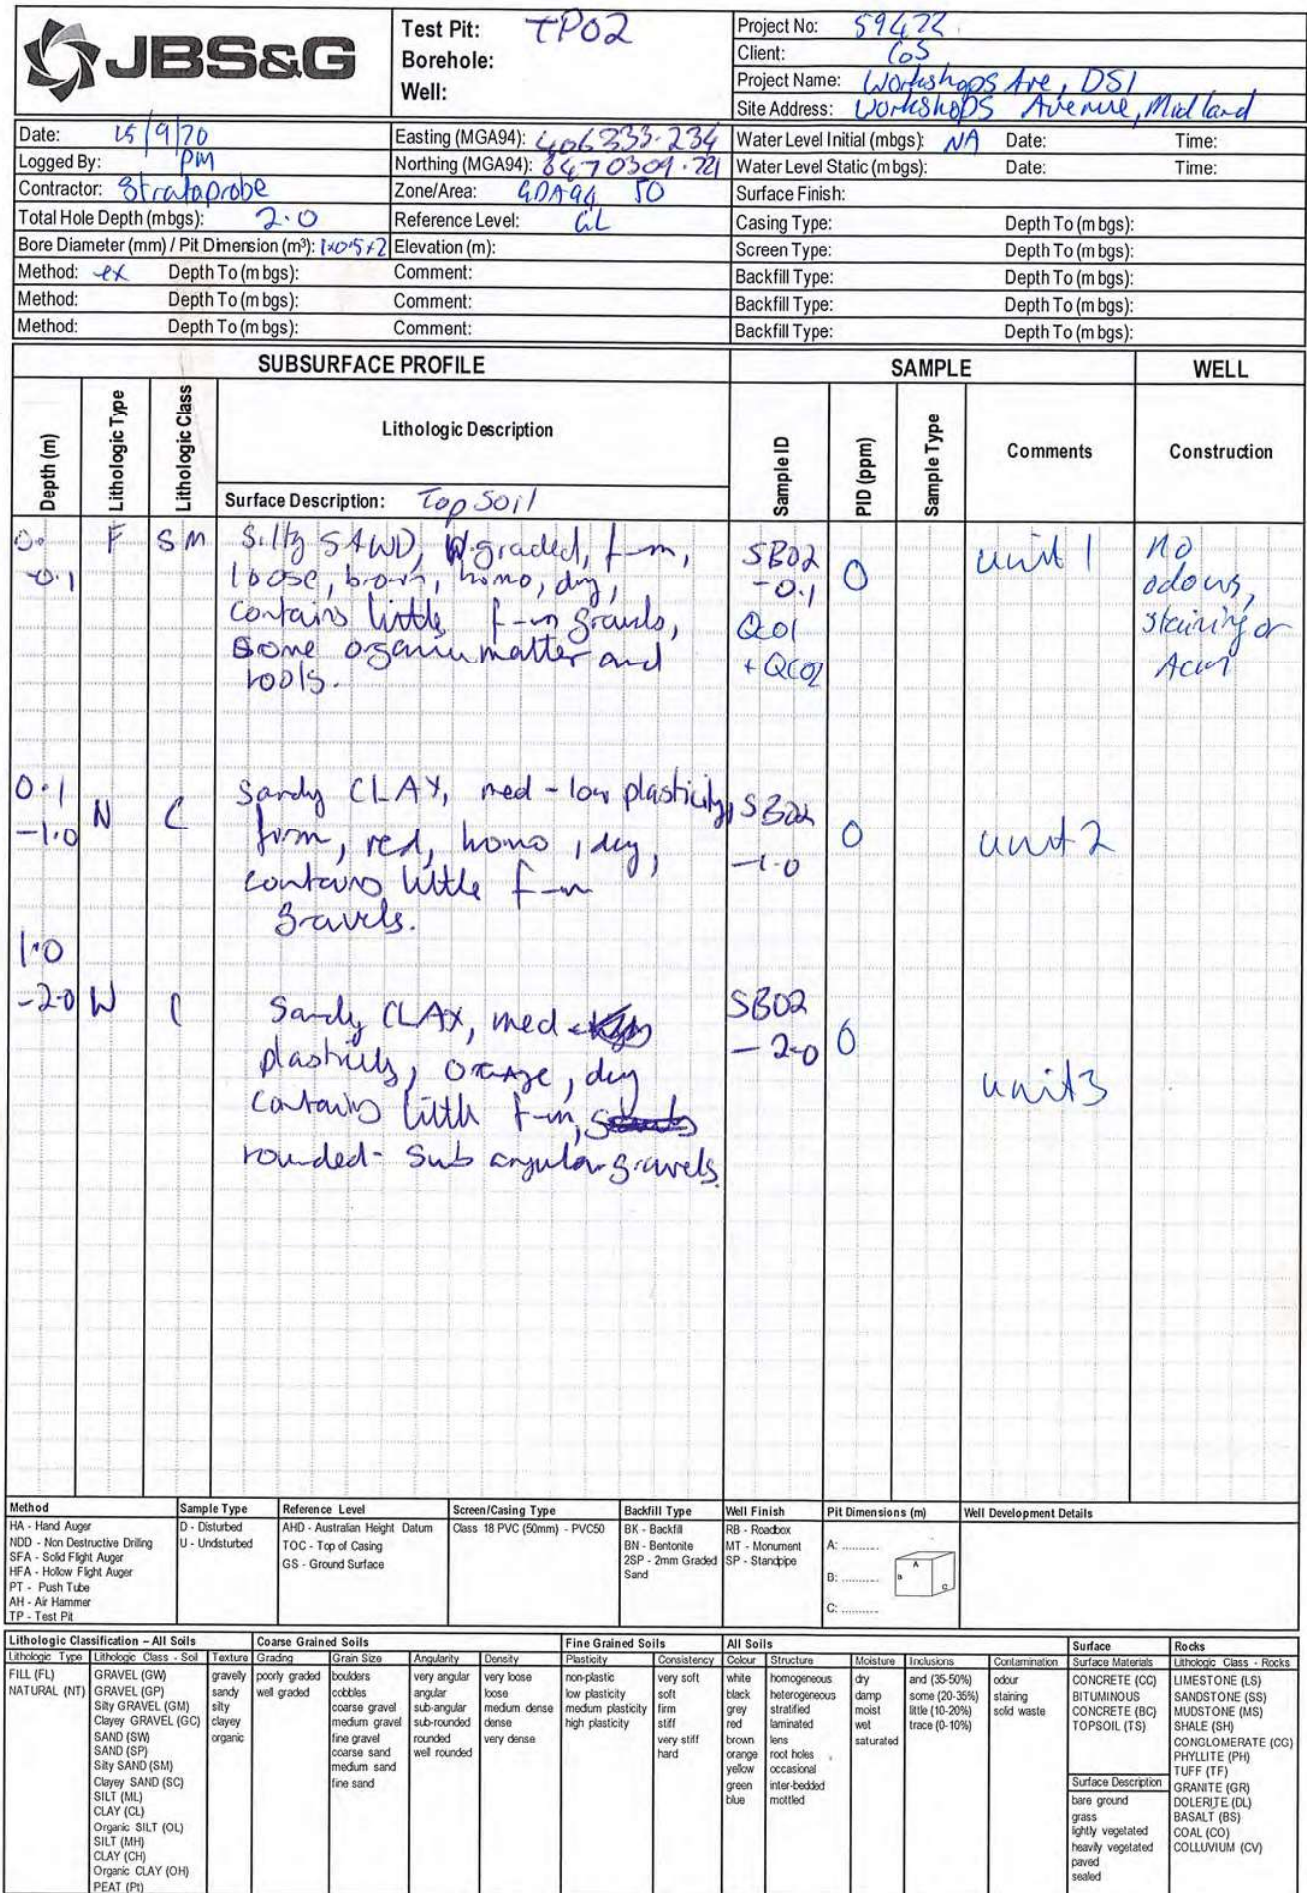 JBS&G
Test Pit: TP02
Borehole:
Well:
Project No: 59422
Client: CoS
Project Name: Workshops Ave, DSI
Site Address: Workshops Avenue, Midland
Date: 15/9/20
Easting (MGA94): 406333.234
Water Level Initial (mbgs): NA Date: Time:
Logged By: PM
Northing (MGA94): 6470309.721
Water Level Static (mbgs): Date: Time:
Contractor: Strataprobe
Zone/Area: GDA94 50
Surface Finish:
Total Hole Depth (mbgs): 2.0
Reference Level: GL
Casing Type: Depth To (m bgs):
Bore Diameter (mm) / Pit Dimension (m³): 1x0.5x2
Elevation (m):
Screen Type: Depth To (m bgs):
Method: ex Depth To (m bgs): Comment:
Backfill Type: Depth To (m bgs):
Method: Depth To (m bgs): Comment:
Backfill Type: Depth To (m bgs):
Method: Depth To (m bgs): Comment:
Backfill Type: Depth To (m bgs):
SUBSURFACE PROFILE SAMPLE WELL
Depth (m) Lithologic Type Lithologic Class Lithologic Description Sample ID PID (ppm) Sample Type Comments Construction
Surface Description: Top Soil
0. -0.1
F
SM
Silty SAND, W.graded, f-m,
loose, brown, homo, dry,
contains little f-m gravels,
some organic matter and
roots.
SB02
-0.1
Q01
+ QC02
0
unit 1
no
odours,
staining or
Acm
0.1
-1.0
N
C
Sandy CLAY, med-low plasticity,
firm, red, homo, dry,
contains little f-m
gravels.
SB02
-1.0
0
unit 2
1.0
-2.0
N
C
Sandy CLAY, med
plasticity, orange, dry
contains little f-m,
rounded- sub angular gravels.
SB02
-2.0
0
unit3
Method
HA - Hand Auger
NDD - Non Destructive Drilling
SFA - Solid Flight Auger
HFA - Hollow Flight Auger
PT - Push Tube
AH - Air Hammer
TP - Test Pit
Sample Type
D - Disturbed
U - Undisturbed
Reference Level
AHD - Australian Height Datum
TOC - Top of Casing
GS - Ground Surface
Screen/Casing Type
Class 18 PVC (50mm) - PVC50
Backfill Type
BK - Backfill
BN - Bentonite
2SP - 2mm Graded
Sand
Well Finish
RB - Roadbox
MT - Monument
SP - Standpipe
Pit Dimensions (m)
A: ............
B: ............
C: ............
A
B
C
Well Development Details
Lithologic Classification – All Soils
Lithologic Type
FILL (FL)
NATURAL (NT)
Lithologic Class - Soil
GRAVEL (GW)
GRAVEL (GP)
Silty GRAVEL (GM)
Clayey GRAVEL (GC)
SAND (SW)
SAND (SP)
Silty SAND (SM)
Clayey SAND (SC)
SILT (ML)
CLAY (CL)
Organic SILT (OL)
SILT (MH)
CLAY (CH)
Organic CLAY (OH)
PEAT (Pt)
Texture
gravelly
sandy
silty
clayey
organic
Coarse Grained Soils
Grading
poorly graded
well graded
Grain Size
boulders
cobbles
coarse gravel
medium gravel
fine gravel
coarse sand
medium sand
fine sand
Angularity
very angular
angular
sub-angular
sub-rounded
rounded
well rounded
Density
very loose
loose
medium dense
dense
very dense
Fine Grained Soils
Plasticity
non-plastic
low plasticity
medium plasticity
high plasticity
Consistency
very soft
soft
firm
stiff
very stiff
hard
All Soils
Colour
white
black
grey
red
brown
orange
yellow
green
blue
Structure
homogeneous
heterogeneous
stratified
laminated
lens
root holes
occasional
inter-bedded
mottled
Moisture
dry
damp
moist
wet
saturated
Inclusions
and (35-50%)
some (20-35%)
little (10-20%)
trace (0-10%)
Contamination
odour
staining
solid waste
Surface
Surface Materials
CONCRETE (CC)
BITUMINOUS
CONCRETE (BC)
TOPSOIL (TS)
Surface Description
bare ground
grass
lightly vegetated
heavily vegetated
paved
sealed
Rocks
Lithologic Class - Rocks
LIMESTONE (LS)
SANDSTONE (SS)
MUDSTONE (MS)
SHALE (SH)
CONGLOMERATE (CG)
PHYLLITE (PH)
TUFF (TF)
GRANITE (GR)
DOLERITE (DL)
BASALT (BS)
COAL (CO)
COLLUVIUM (CV)